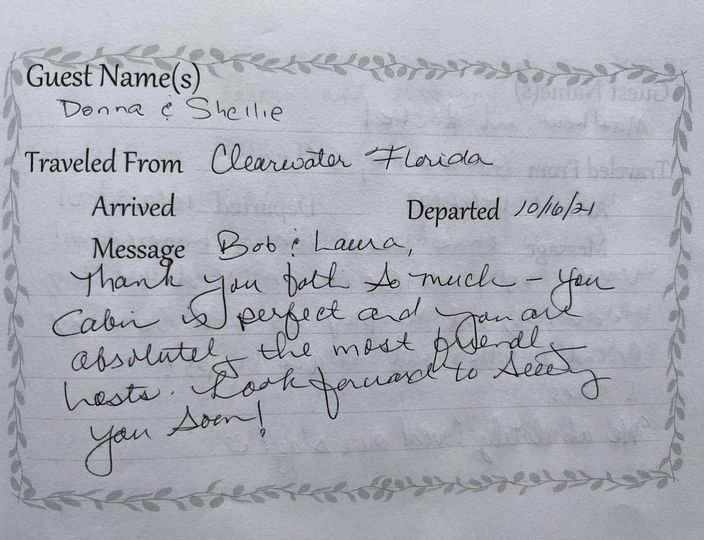 Guest Name(s)
Donna & Shellie
Traveled From Clearwater Florida
Arrived Departed 10/16/21
Message Bob & Laura,
Thank you both so much - you
Cabin is perfect and you are
absolutely the most friendly
hosts. Look forward to seeing
you soon!